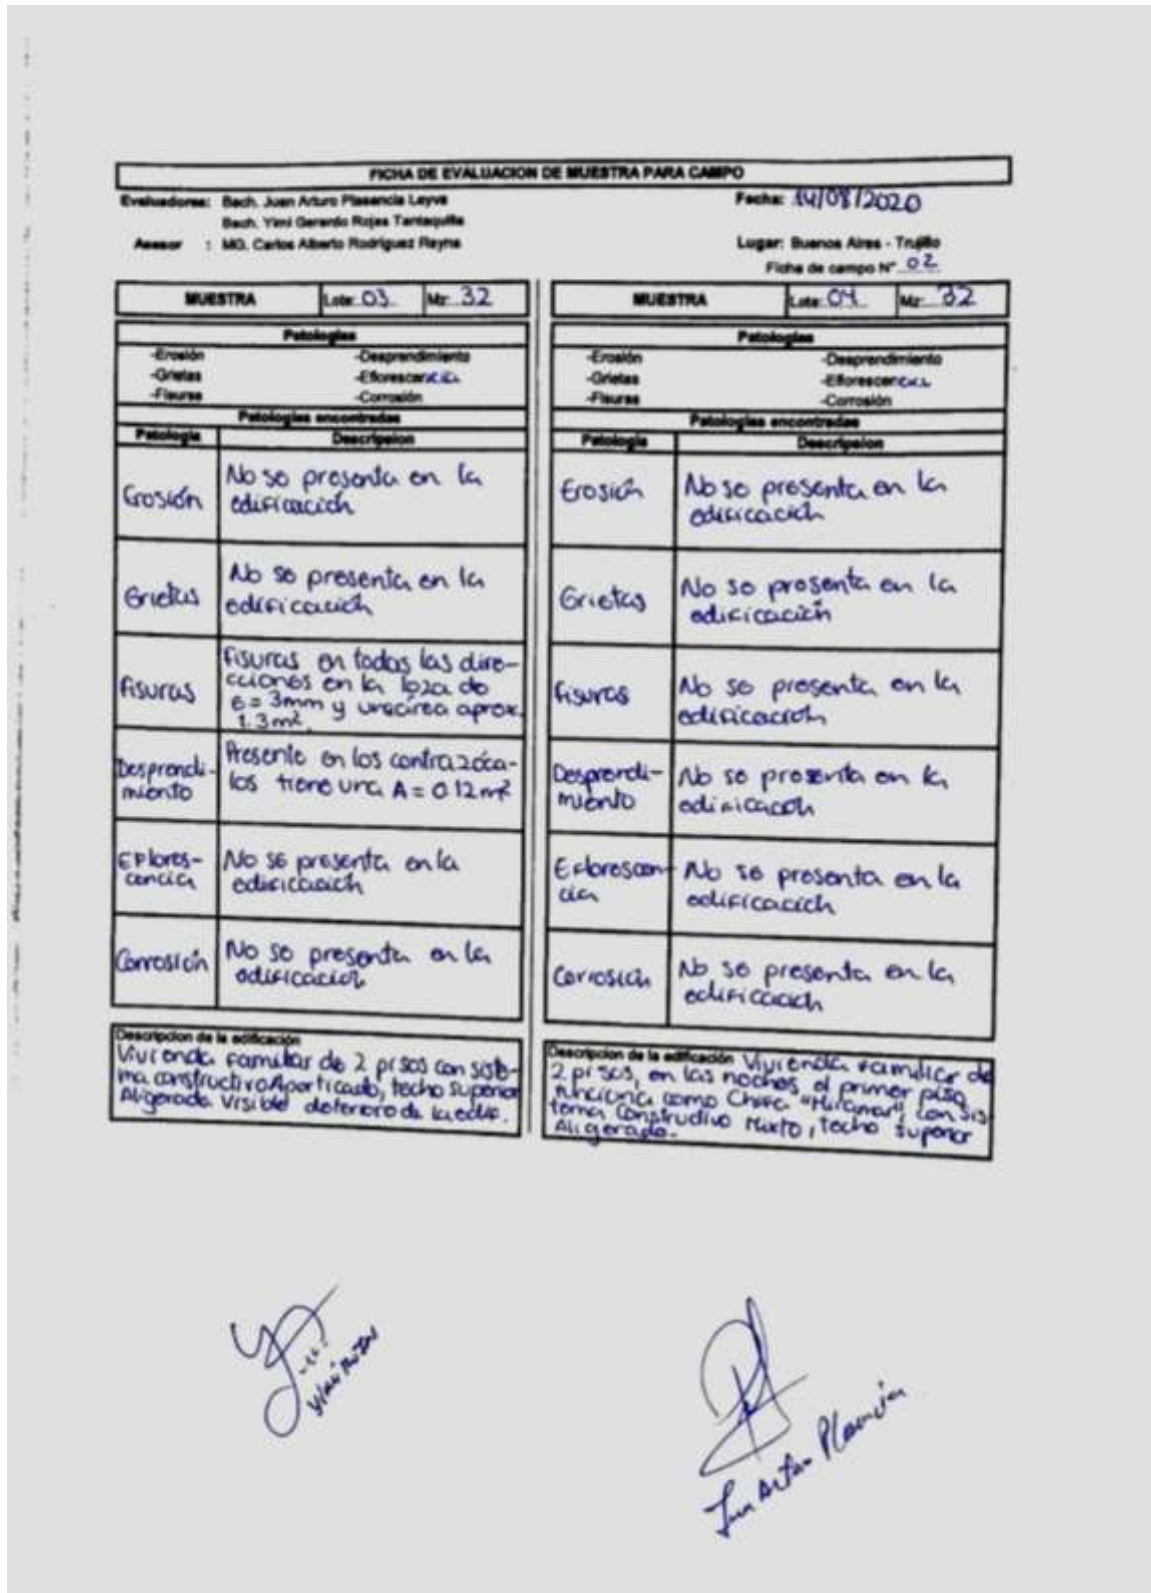 FICHA DE EVALUACION DE MUESTRA PARA CAMPO
Evaluadores: Bach. Juan Arturo Plasencia Leyva
Fecha: 14/08/2020
Bach. Yimi Gerardo Rojas Tantaquilla
Asesor : MG. Carlos Alberto Rodríguez Reyna
Lugar: Buenos Aires - Trujillo
Ficha de campo N° 02
MUESTRA Lote: 03 Mz: 32
Patologías
-Erosión -Desprendimiento
-Grietas -Eflorescencia
-Fisuras -Corrosión
Patologías encontradas
Patología Descripsion
Erosión
No se presenta en la
edificación
Grietas
No se presenta en la
edificación
Fisuras
Fisuras en todas las dire-
cciones en la loza de
e = 3mm y una área aprox.
1.3 m².
Desprendi-
miento
Presente en los contrazóca-
los tiene una A = 0.12 m²
Eflores-
cencia
No se presenta en la
edificación
Corrosión
No se presenta en la
edificación
Descripcion de la edificación
Vivienda familiar de 2 pisos con siste-
ma constructivo Aporticado, techo superior
Aligerado. Visible deterioro de la edif.
MUESTRA Lote: 04 Mz: 32
Patologías
-Erosión -Desprendimiento
-Grietas -Eflorescencia
-Fisuras -Corrosión
Patologías encontradas
Patología Descripsion
Erosión
No se presenta en la
edificación
Grietas
No se presenta en la
edificación
Fisuras
No se presenta en la
edificación
Desprendi-
miento
No se presenta en la
edificación
Eflorescen-
cia
No se presenta en la
edificación
Corrosión
No se presenta en la
edificación
Descripcion de la edificación Vivienda familiar de
2 pisos, en las noches, el primer piso
funciona como Chifa "Miramar", con sis-
tema Constructivo Mixto, techo superior
Aligerado.
Juan Arturo Plasencia